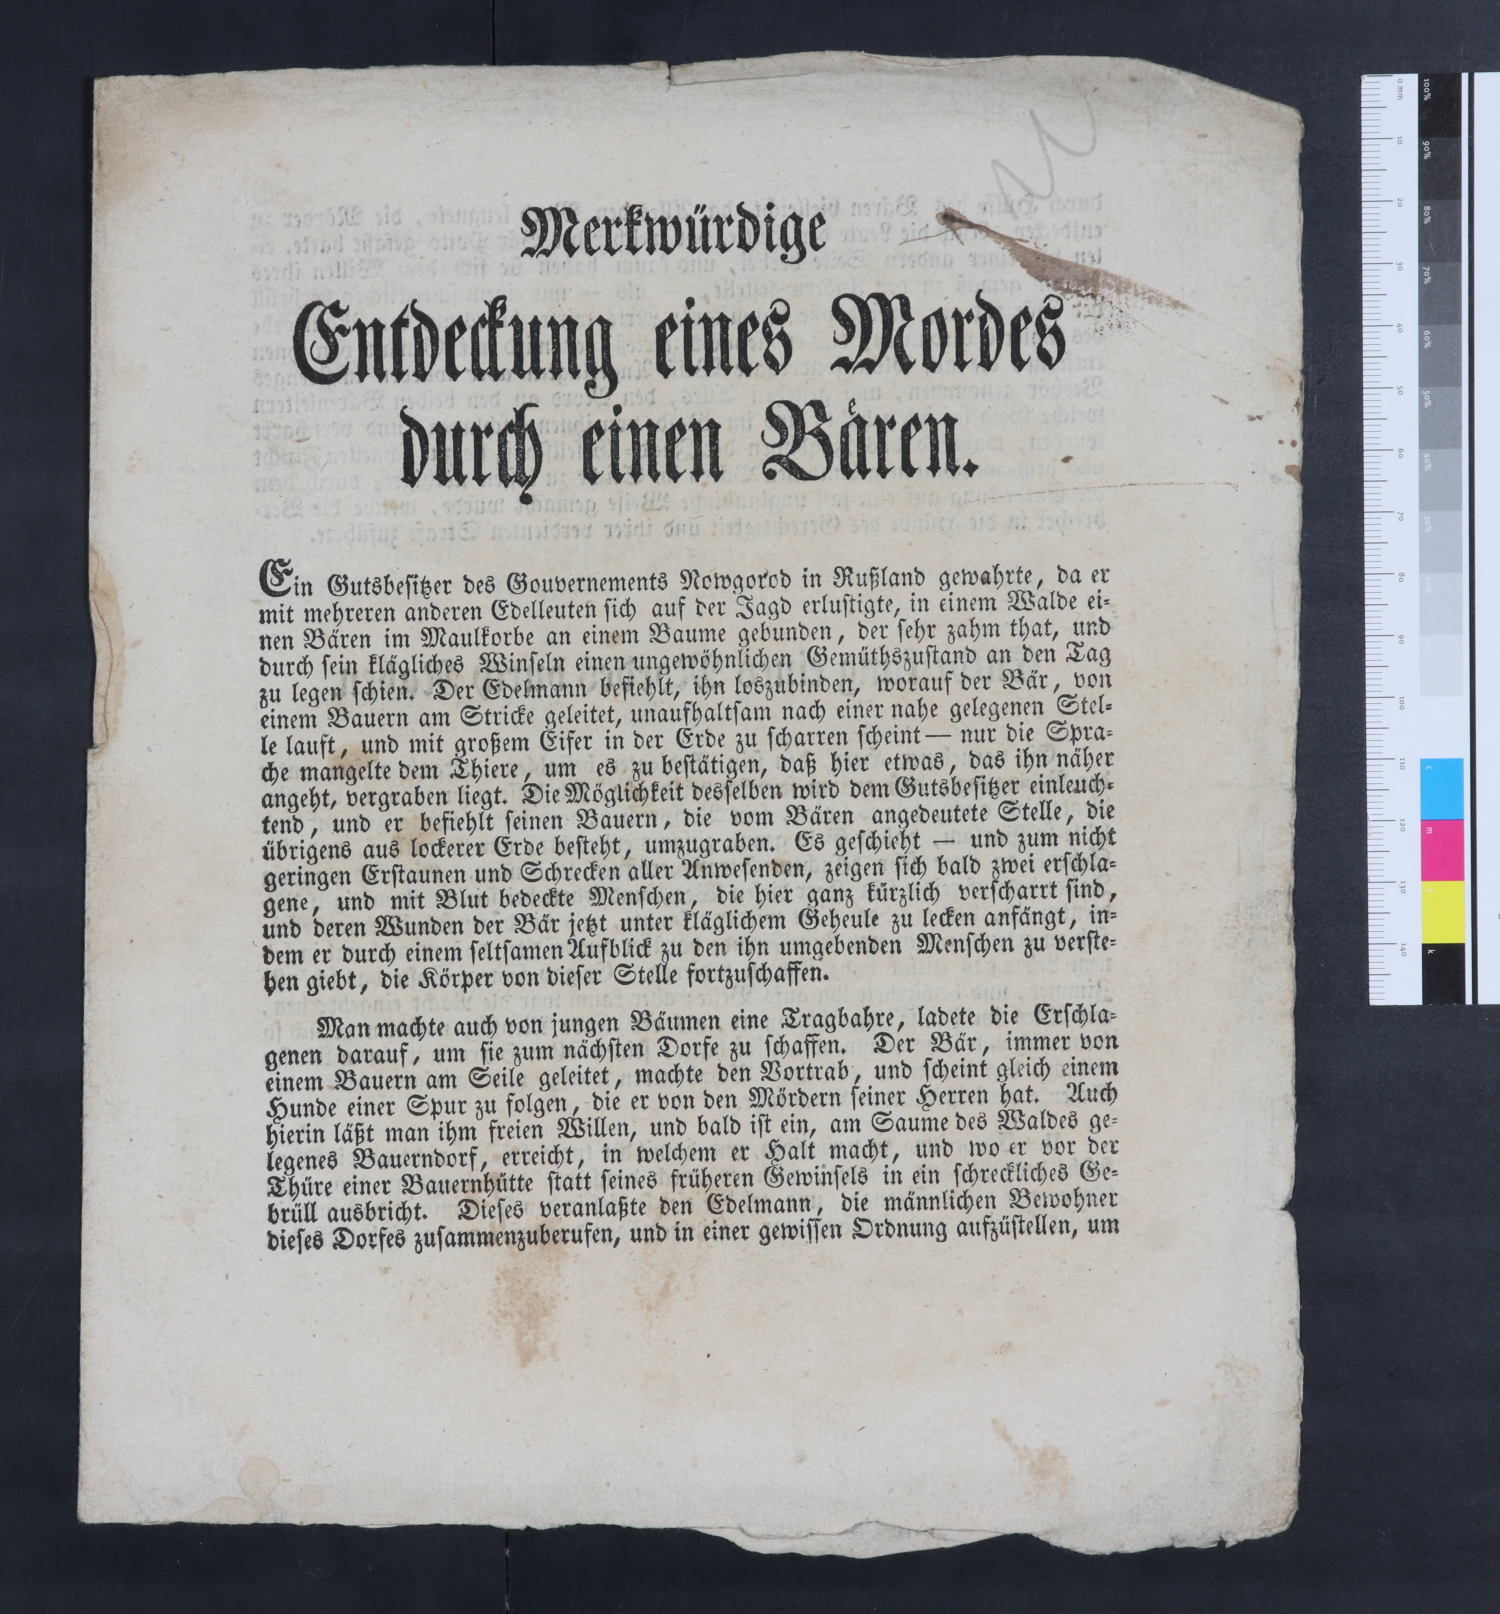 Merkwürdige
Entdeckung eines Mordes
durch einen Bären.
Ein Gutsbesitzer des Gouvernements Nowgorod in Rußland gewahrte, da er
mit mehreren anderen Edelleuten sich auf der Jagd erlustigte, in einem Walde ei-
nen Bären im Maulkorbe an einem Baume gebunden, der sehr zahm that, und
durch sein klägliches Winseln einen ungewöhnlichen Gemüthszustand an den Tag
zu legen schien. Der Edelmann befiehlt, ihn loszubinden, worauf der Bär, von
einem Bauern am Stricke geleitet, unaufhaltsam nach einer nahe gelegenen Stel-
le lauft, und mit großem Eifer in der Erde zu scharren scheint — nur die Spra-
che mangelte dem Thiere, um es zu bestätigen, daß hier etwas, das ihn näher
angeht, vergraben liegt. Die Möglichkeit desselben wird dem Gutsbesitzer einleuch-
tend, und er befiehlt seinen Bauern, die vom Bären angedeutete Stelle, die
übrigens aus lockerer Erde besteht, umzugraben. Es geschieht — und zum nicht
geringen Erstaunen und Schrecken aller Anwesenden, zeigen sich bald zwei erschla-
gene, und mit Blut bedeckte Menschen, die hier ganz kürzlich verscharrt sind,
und deren Wunden der Bär jetzt unter kläglichem Geheule zu lecken anfängt, in-
dem er durch einem seltsamen Aufblick zu den ihn umgebenden Menschen zu verste-
hen giebt, die Körper von dieser Stelle fortzuschaffen.
Man machte auch von jungen Bäumen eine Tragbahre, ladete die Erschla-
genen darauf, um sie zum nächsten Dorfe zu schaffen. Der Bär, immer von
einem Bauern am Seile geleitet, machte den Vortrab, und scheint gleich einem
Hunde einer Spur zu folgen, die er von den Mördern seiner Herren hat. Auch
hierin läßt man ihm freien Willen, und bald ist ein, am Saume des Waldes ge-
legenes Bauerndorf, erreicht, in welchem er Halt macht, und wo er vor der
Thüre einer Bauernhütte statt seines früheren Gewinsels in ein schreckliches Ge-
brüll ausbricht. Dieses veranlaßte den Edelmann, die männlichen Bewohner
dieses Dorfes zusammenzuberufen, und in einer gewissen Ordnung aufzüstellen, um